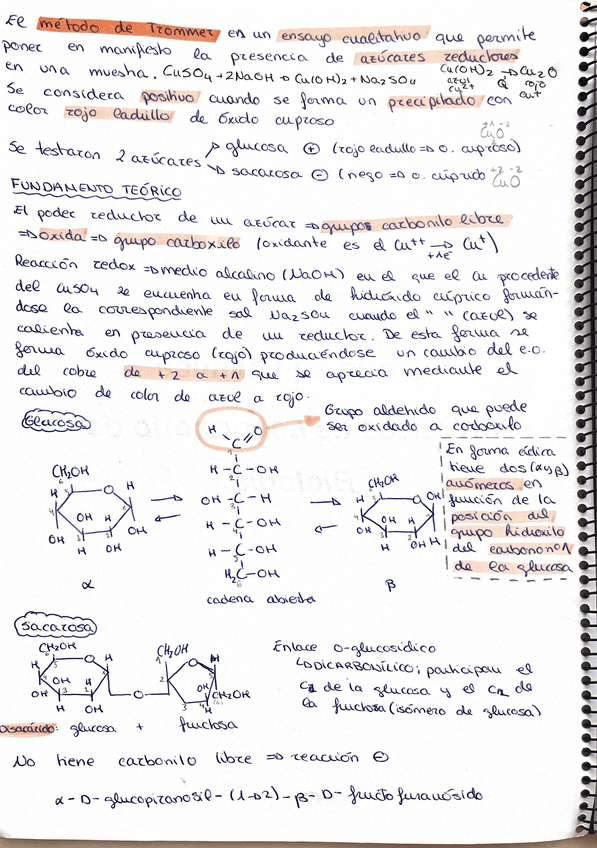 El método de Trommer es un ensayo cualitativo que permite
poner en manifiesto la presencia de azúcares reductores
en una muestra. CuSO4 + 2NaOH → Cu(OH)2 + Na2SO4 Cu(OH)2 → Cu2O
azul Q rojo
Cu2+ Cu+
Se considera positivo cuando se forma un precipitado con
color rojo ladrillo de óxido cuproso
+1 -2
Cu2O
Se testaron 2 azúcares glucosa ⊕ (rojo ladrillo ⇒ o. cuproso)
sacarosa ⊖ (negro ⇒ o. cúprico +2 -2 CuO
FUNDAMENTO TEÓRICO
El poder reductor de un azúcar ⇒ grupos carbonilo libre
⇒ oxida ⇒ grupo carboxilo (oxidante es el Cu++ → Cu+)
+1e-
Reacción redox ⇒ medio alcalino (NaOH) en el que el Cu procedente
del CuSO4 se encuentra en forma de hidróxido cúprico formán-
dose la correspondiente sal Na2SO4 cuando el " " (azul) se
calienta en presencia de un reductor. De esta forma se
forma óxido cuproso (rojo) produciéndose un cambio del e.o.
del cobre de +2 a +1 que se aprecia mediante el
cambio de color de azul a rojo.
Glucosa
Grupo aldehido que puede
ser oxidado a carboxilo
H C O
1
H - C - OH
2
OH - C - H
3
H - C - OH
4
H - C - OH
5
H2C - OH
6
cadena abierta
CH2OH
H 5 O H
4 H 1
OH OH H OH
3 2
H OH
α
CH2OH
H 5 O OH
4 H 1
OH OH H H
3 2
H OH
β
En forma cíclica
tiene dos (α y β)
anómeros en
función de la
posición del
grupo hidroxilo
del carbono nº1
de la glucosa
Sacarosa
CH2OH
H 5 O H
4 H 1
OH OH H
3 2
H OH
O
CH2OH
1 O H
2 5
OH CH2OH
3 4 H
Enlace O-glucosídico
↳ DICARBONÍLICO; participan el
C1 de la glucosa y el C2 de
la fructosa (isómero de glucosa)
Disacárido: glucosa + fructosa
No tiene carbonilo libre ⇒ reacción ⊖
α - D - glucopiranosil - (1→2) - β - D - fructofuranósido